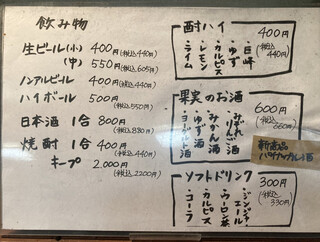 飲み物
生ビール(小) 400円(税込440円)
(中) 550円(税込605円)
ノンアルビール 400円(税込440円)
ハイボール 500円(税込550円)
日本酒 1合 800円(税込880円)
焼酎 1合 400円(税込440円)
キープ 2,000円(税込2200円)
酎ハイ 400円(税込440円)
・巨峰
・ゆず
・カルピス
・レモン
・ライム
果実のお酒 600円(税込660円)
・あずれりんご酒
・みかん酒
・ゆず酒
・ヨーグルト酒
新商品
パイナップル酒
ソフトドリンク 300円(税込330円)
・ジンジャーエール
・ウーロン茶
・カルピス
・コーラ